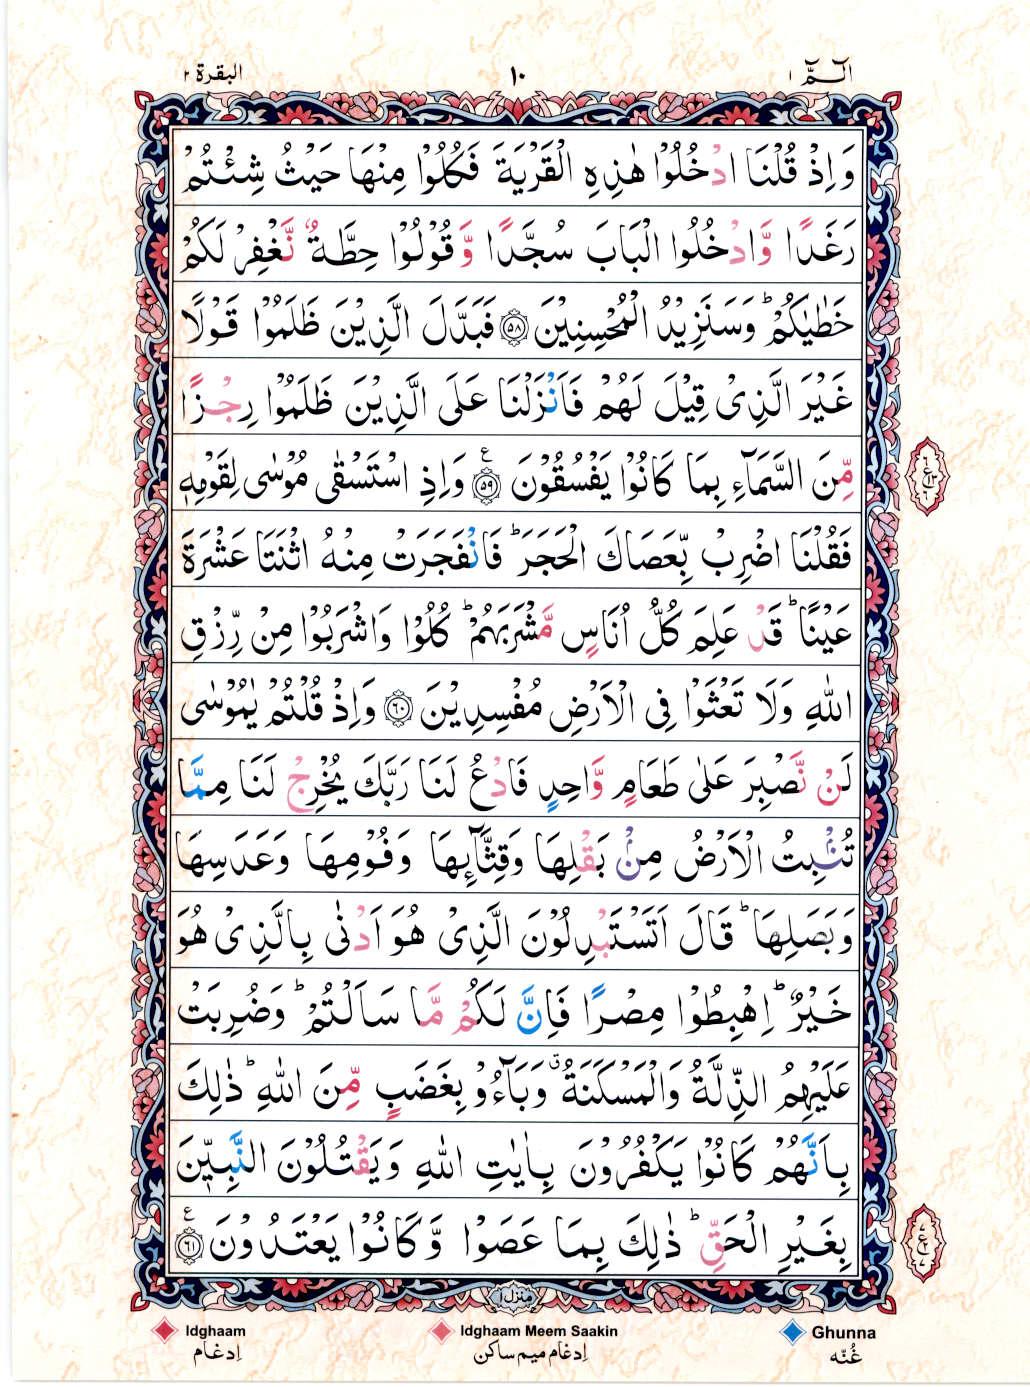 الٓمّٓ ١
١٠
البقرة ٢
وَاِذْ قُلْنَا ادْخُلُوْا هٰذِهِ الْقَرْيَةَ فَكُلُوْا مِنْهَا حَيْثُ شِئْتُمْ
رَغَدًا وَّادْخُلُوا الْبَابَ سُجَّدًا وَّقُوْلُوْا حِطَّةٌ نَّغْفِرْ لَكُمْ
خَطٰيٰكُمْ ؕ وَسَنَزِيْدُ الْمُحْسِنِيْنَ ﴿۵۸﴾ فَبَدَّلَ الَّذِيْنَ ظَلَمُوْا قَوْلًا
غَيْرَ الَّذِىْ قِيْلَ لَهُمْ فَاَنْزَلْنَا عَلَى الَّذِيْنَ ظَلَمُوْا رِجْزًا
مِّنَ السَّمَآءِ بِمَا كَانُوْا يَفْسُقُوْنَ ﴿۵۹﴾ ع وَاِذِ اسْتَسْقٰى مُوْسٰى لِقَوْمِهٖ
فَقُلْنَا اضْرِبْ بِّعَصَاكَ الْحَجَرَ ؕ فَانْفَجَرَتْ مِنْهُ اثْنَتَا عَشْرَةَ
عَيْنًا ؕ قَدْ عَلِمَ كُلُّ اُنَاسٍ مَّشْرَبَهُمْ ؕ كُلُوْا وَاشْرَبُوْا مِنْ رِّزْقِ
اللّٰهِ وَلَا تَعْثَوْا فِى الْاَرْضِ مُفْسِدِيْنَ ﴿۶۰﴾ وَاِذْ قُلْتُمْ يٰمُوْسٰى
لَنْ نَّصْبِرَ عَلٰى طَعَامٍ وَّاحِدٍ فَادْعُ لَنَا رَبَّكَ يُخْرِجْ لَنَا مِمَّا
تُنْۢبِتُ الْاَرْضُ مِنْۢ بَقْلِهَا وَقِثَّآئِهَا وَفُوْمِهَا وَعَدَسِهَا
وَبَصَلِهَا ؕ قَالَ اَتَسْتَبْدِلُوْنَ الَّذِىْ هُوَ اَدْنٰى بِالَّذِىْ هُوَ
خَيْرٌ ؕ اِهْبِطُوْا مِصْرًا فَاِنَّ لَكُمْ مَّا سَاَلْتُمْ ؕ وَضُرِبَتْ
عَلَيْهِمُ الذِّلَّةُ وَالْمَسْكَنَةُ ۛ وَبَآءُوْ بِغَضَبٍ مِّنَ اللّٰهِ ؕ ذٰلِكَ
بِاَنَّهُمْ كَانُوْا يَكْفُرُوْنَ بِاٰيٰتِ اللّٰهِ وَيَقْتُلُوْنَ النَّبِيّٖنَ
بِغَيْرِ الْحَقِّ ؕ ذٰلِكَ بِمَا عَصَوْا وَّكَانُوْا يَعْتَدُوْنَ ﴿۶۱﴾ ع
منزل ١
Idghaam
ادغام
Idghaam Meem Saakin
ادغام میم ساکن
Ghunna
غُنّه